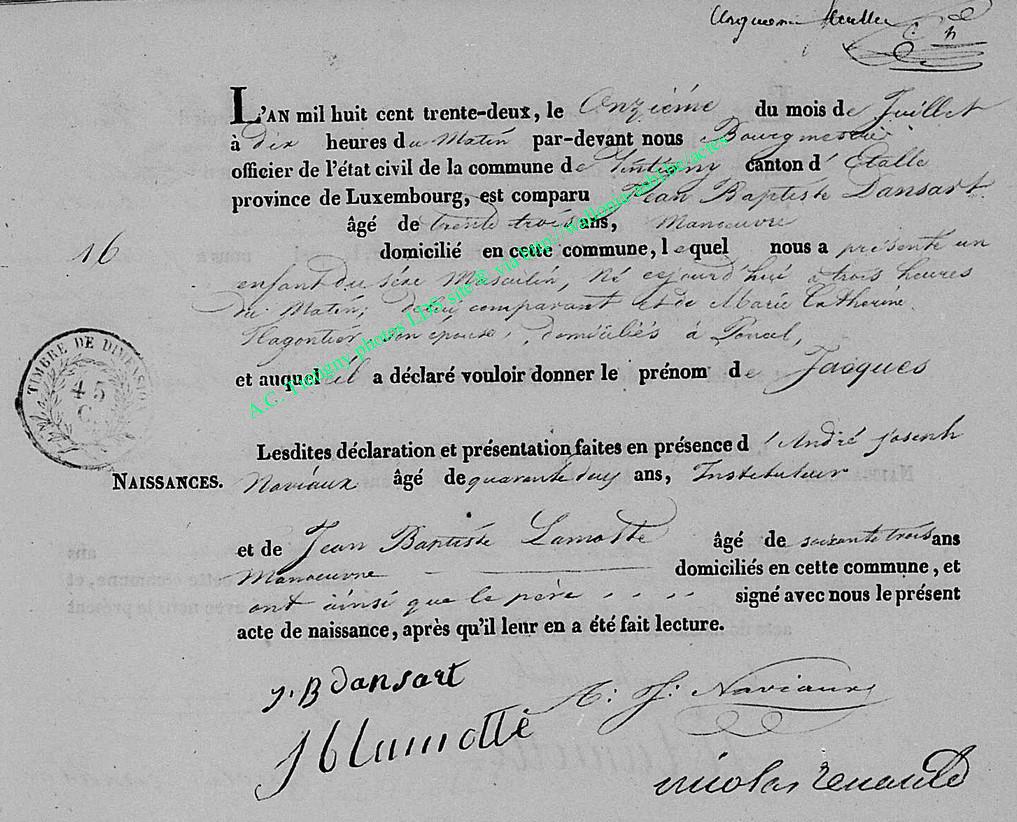 L'AN mil huit cent trente-deux, le Onzième du mois de Juillet
à dix heures du Matin par-devant nous Bourgmestre
officier de l'état civil de la commune de Tintigny canton d'Etalle
province de Luxembourg, est comparu Jean Baptiste Dansart
âgé de trente trois ans, Manoeuvre
16
domicilié en cette commune, lequel nous a présenté un
enfant du séxe Masculin, Né cejourd'hui à trois heures
du Matin, de lui comparant et de Marie Catherine
son épouse, domiciliés à Poncel,
et auquel il a déclaré vouloir donner le prénom de Jacques
TIMBRE DE DIMENSION
45
C.
Lesdites déclaration et présentation faites en présence d'André joseph
NAISSANCES. Naviaux âgé de quarante deux ans, Instituteur
et de Jean Baptiste Lamotte âgé de soixante trois ans
Manoeuvre domiciliés en cette commune, et
ont ainsi que le père signé avec nous le présent
acte de naissance, après qu'il leur en a été fait lecture.
j. B dansart
A: J: Naviaux
J b lamotte
nicolas renauld
A.C. Tintigny photos LDS site® via http://wallonia-asbl.be/actes